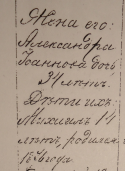 Жена его:
Александра
Іоаннова дочь
34 лѣтъ.
Дѣти ихъ:
Михаилъ 14
лѣтъ, родился
года